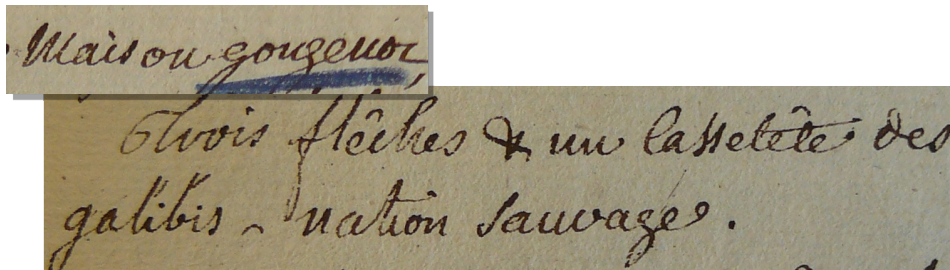 Maison gougenot,
trois flêches & un cassetête des
galibis - nation sauvage.